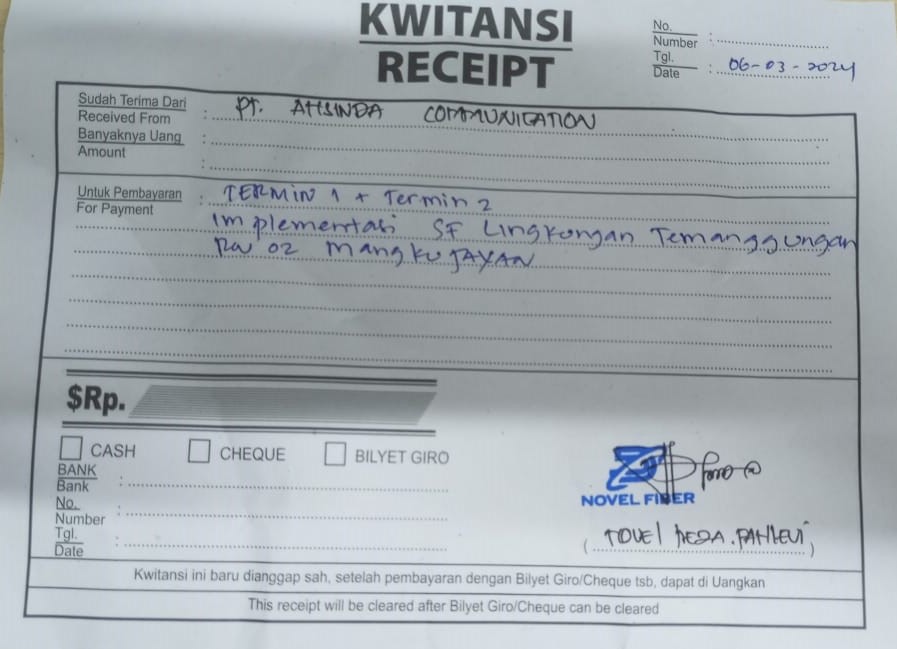 KWITANSI
RECEIPT
No.
Number :
Tgl.
Date : 06-03-2024
Sudah Terima Dari
Received From : PT. AHSINDA COMMUNICATION
Banyaknya Uang
Amount :
:
Untuk Pembayaran : TERMIN 1 + Termin 2
For Payment
Implementasi SF Lingkungan Temanggungan
RW 02 MANGKUJAYAN
$Rp.
CASH CHEQUE BILYET GIRO
BANK
Bank :
No.
Number :
Tgl.
Date :
NOVEL FIBER
( PAHLEVI )
Kwitansi ini baru dianggap sah, setelah pembayaran dengan Bilyet Giro/Cheque tsb, dapat di Uangkan
This receipt will be cleared after Bilyet Giro/Cheque can be cleared